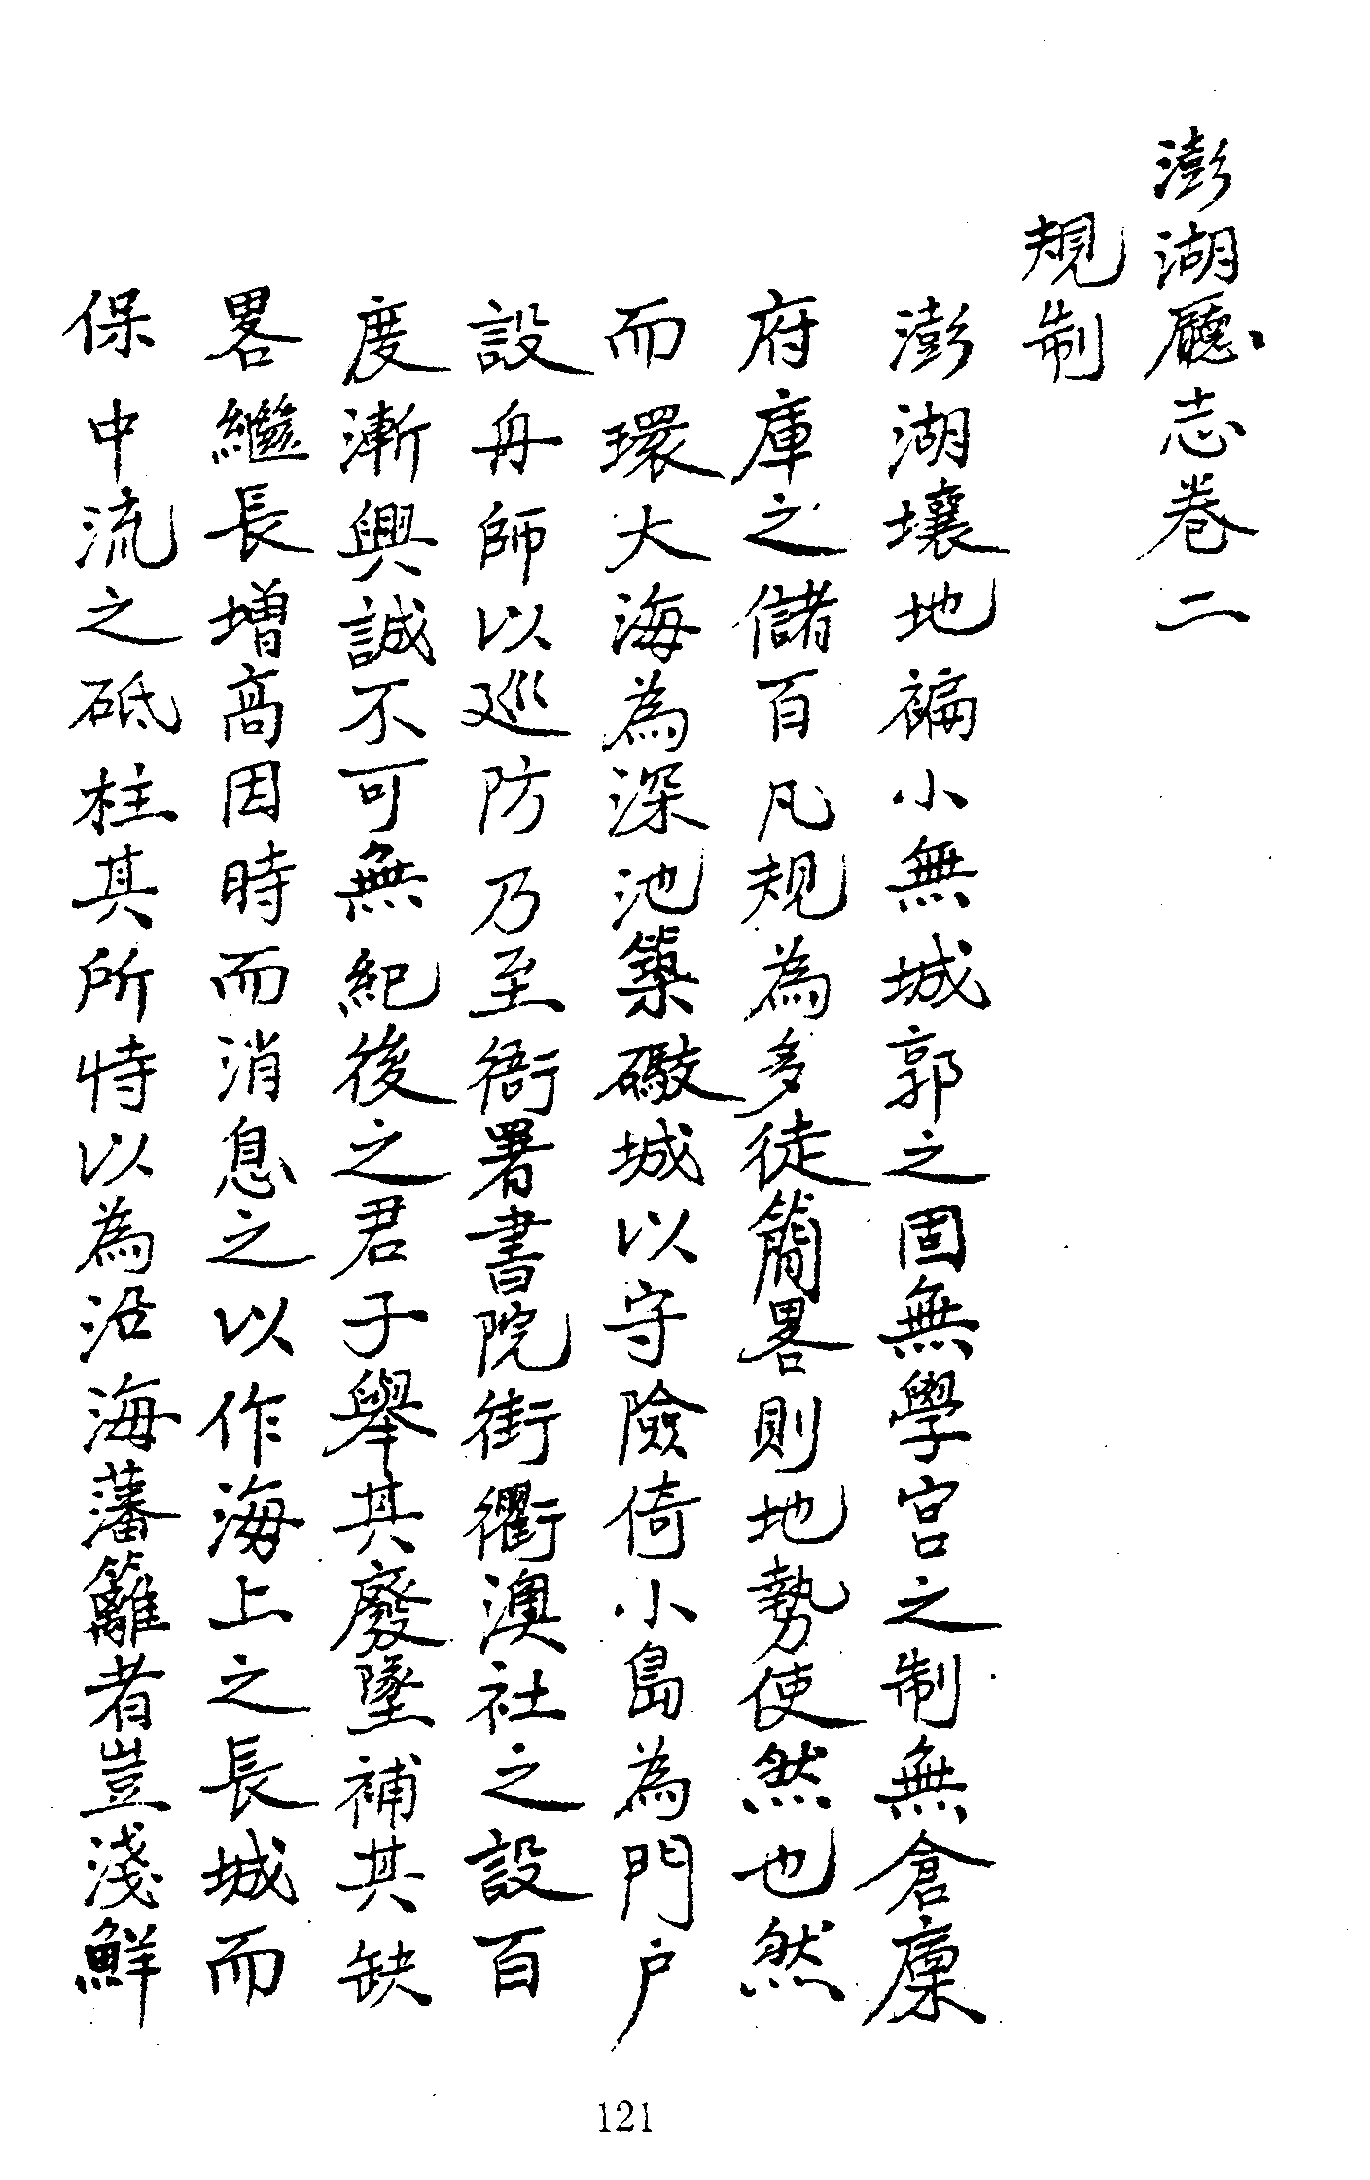 澎湖廳志卷二
規制
澎湖壤地褊小無城郭之固無學宮之制無倉廩
府庫之儲百凡規為多徒簡畧則地勢使然也然
而環大海為深池築礮城以守險倚小島為門户
設舟師以巡防乃至衙署書院街衢澳社之設百
度漸興誠不可無紀後之君子舉其廢墜補其缺
畧繼長增高因時而消息之以作海上之長城而
保中流之砥柱其所恃以為沿海藩籬者豈淺鮮
121